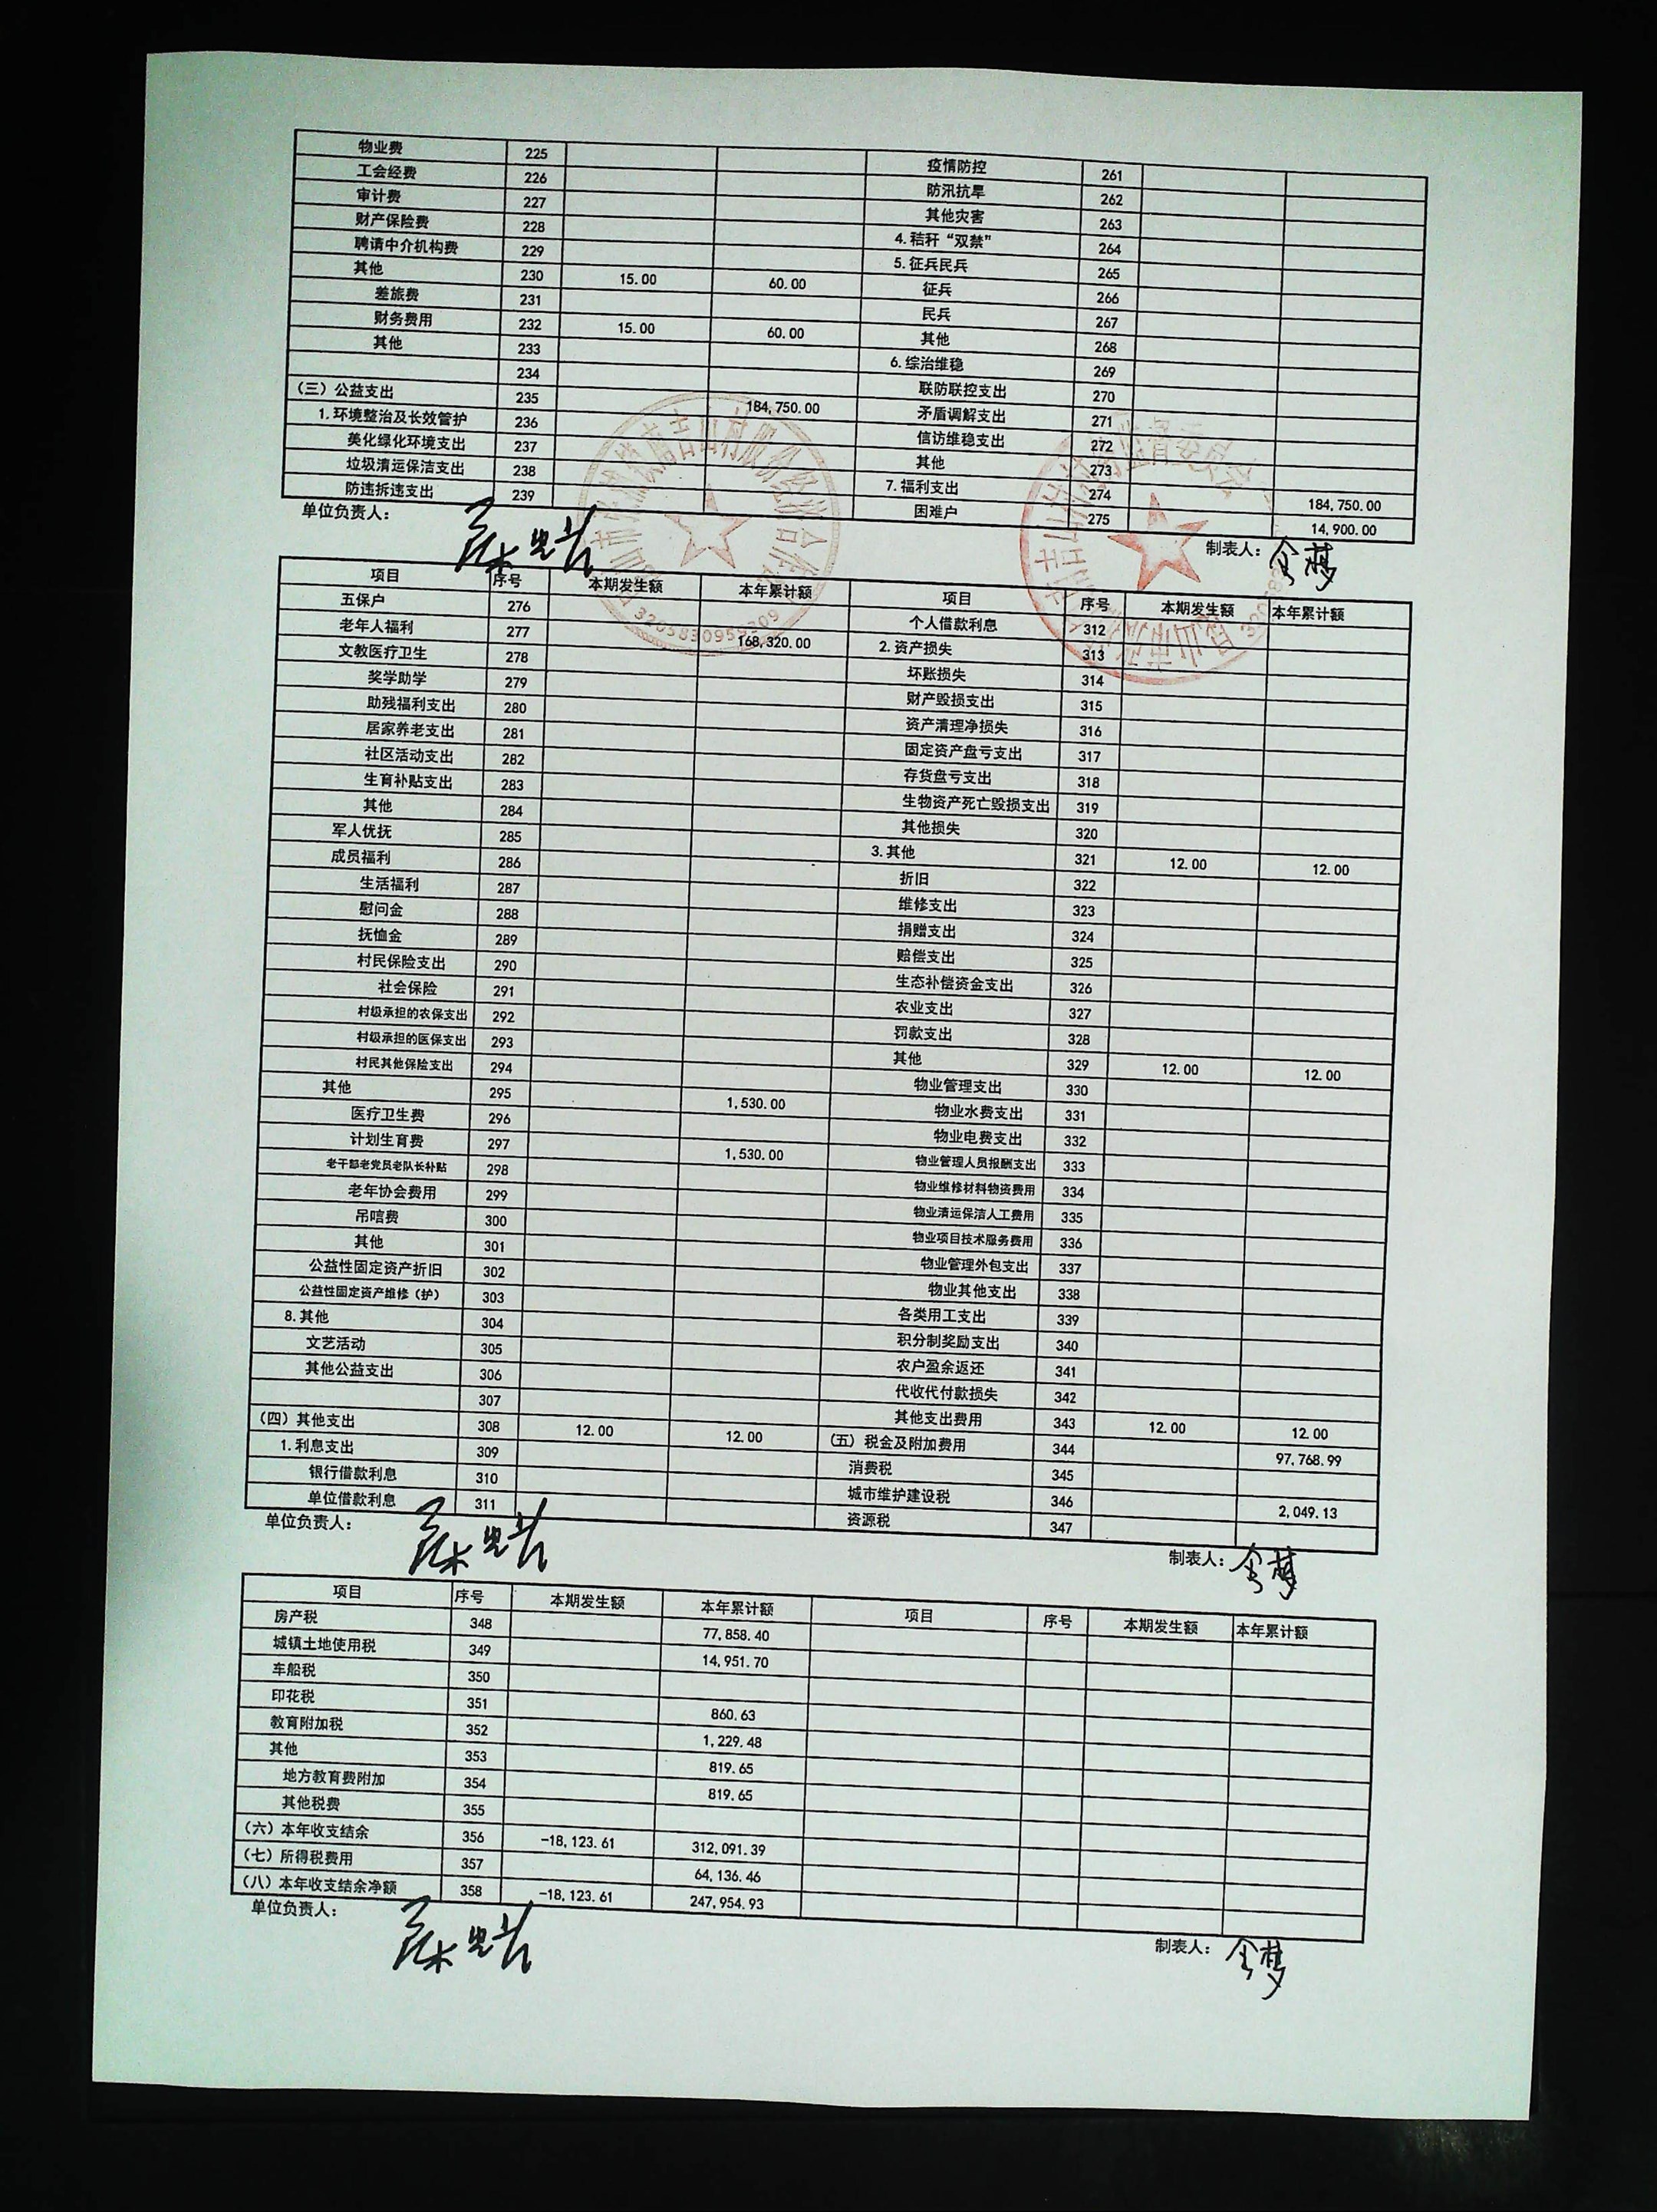 物业费 225 疫情防控 261
工会经费 226 防汛抗旱 262
审计费 227 其他灾害 263
财产保险费 228 4.秸秆“双禁” 264
聘请中介机构费 229 5.征兵民兵 265
其他 230 15.00 60.00 征兵 266
差旅费 231 民兵 267
财务费用 232 15.00 60.00 其他 268
其他 233 6.综治维稳 269
234 联防联控支出 270
（三）公益支出 235 184,750.00 矛盾调解支出 271
1.环境整治及长效管护 236 信访维稳支出 272
美化绿化环境支出 237 其他 273
垃圾清运保洁支出 238 7.福利支出 274 184,750.00
防违拆违支出 239 困难户 275 14,900.00
单位负责人： 制表人：
项目 序号 本期发生额 本年累计额 项目 序号 本期发生额 本年累计额
五保户 276 个人借款利息 312
老年人福利 277 168,320.00 2.资产损失 313
文教医疗卫生 278 坏账损失 314
奖学助学 279 财产毁损支出 315
助残福利支出 280 资产清理净损失 316
居家养老支出 281 固定资产盘亏支出 317
社区活动支出 282 存货盘亏支出 318
生育补贴支出 283 生物资产死亡毁损支出 319
其他 284 其他损失 320
军人优抚 285 3.其他 321 12.00 12.00
成员福利 286 折旧 322
生活福利 287 维修支出 323
慰问金 288 捐赠支出 324
抚恤金 289 赔偿支出 325
村民保险支出 290 生态补偿资金支出 326
社会保险 291 农业支出 327
村级承担的农保支出 292 罚款支出 328
村级承担的医保支出 293 其他 329 12.00 12.00
村民其他保险支出 294 物业管理支出 330
其他 295 1,530.00 物业水费支出 331
医疗卫生费 296 物业电费支出 332
计划生育费 297 1,530.00 物业管理人员报酬支出 333
老干部老党员老队长补贴 298 物业维修材料物资费用 334
老年协会费用 299 物业清运保洁人工费用 335
吊唁费 300 物业项目技术服务费用 336
其他 301 物业管理外包支出 337
公益性固定资产折旧 302 物业其他支出 338
公益性固定资产维修（护） 303 各类用工支出 339
8.其他 304 积分制奖励支出 340
文艺活动 305 农户盈余返还 341
其他公益支出 306 代收代付款损失 342
307 其他支出费用 343 12.00 12.00
（四）其他支出 308 12.00 12.00 （五）税金及附加费用 344 97,768.99
1.利息支出 309 消费税 345
银行借款利息 310 城市维护建设税 346 2,049.13
单位借款利息 311 资源税 347
单位负责人： 制表人：
项目 序号 本期发生额 本年累计额 项目 序号 本期发生额 本年累计额
房产税 348 77,858.40
城镇土地使用税 349 14,951.70
车船税 350
印花税 351 860.63
教育附加税 352 1,229.48
其他 353 819.65
地方教育费附加 354 819.65
其他税费 355
（六）本年收支结余 356 -18,123.61 312,091.39
（七）所得税费用 357 64,136.46
（八）本年收支结余净额 358 -18,123.61 247,954.93
单位负责人： 制表人：